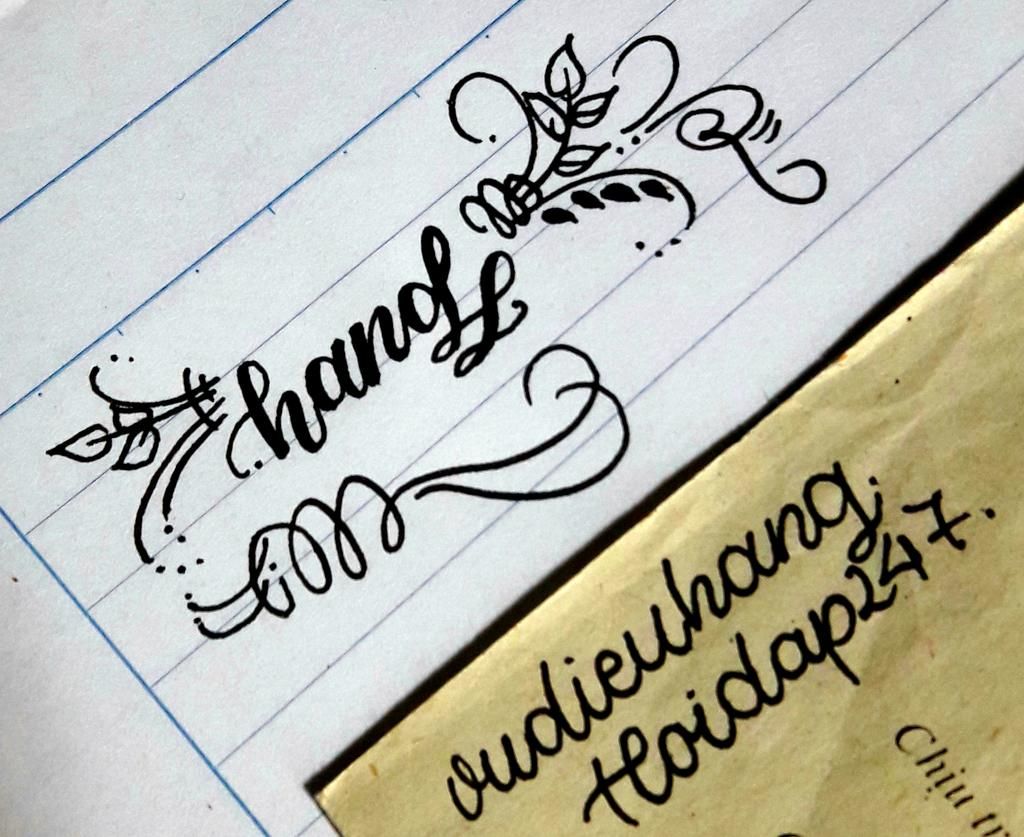 hang
vudieuhang.
Hoidap247.
Chịu